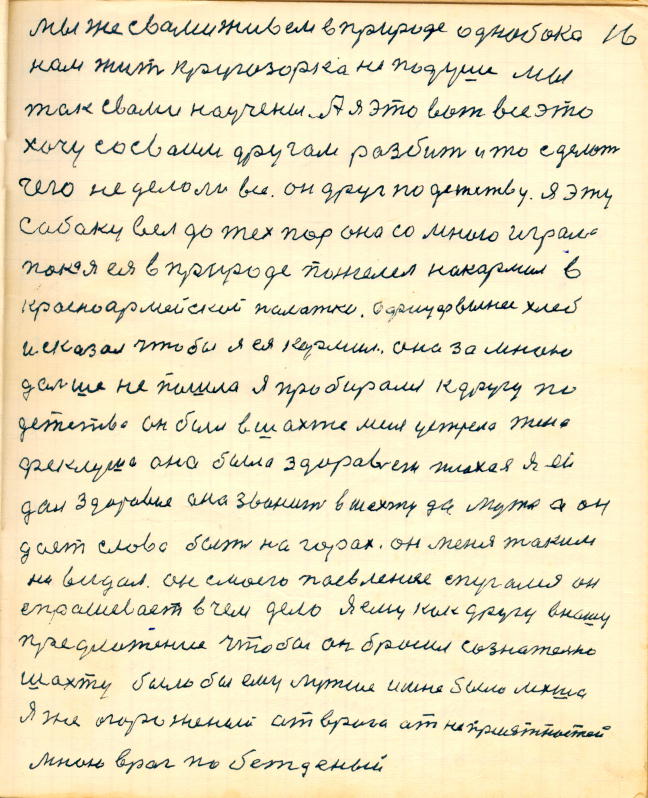 мы же свами живем в природе однобока 16
нам жит кругозорка не подуше мы
так свами научены. А я это вот все это
хочу сосваим другам разбит и то сделат
чего не делали все. он друг по детству. я эту
собаку вел до тех пор она со мною играла
пока я ея в природе пожелел накармил в
красноармейской палатке. офицер вынес хлеб
и сказал чтобы я ея кормил. она за мною
дальше не пошла я пробирался к другу по
детства он был в шахте меня устрела жена
феклуша она была здоровьем плохая я ей
дал здоровие она звонит в шахту да мужа а он
дает слова быт на горах. он меня таким
не видал. он с моего паевление спугался он
спрашевает в чем дело я ему как другу вношу
предложение чтобы он бросил сознательно
шахту было бы ему лучше и мне было лехша
Я же огороженый от врага от неприятностей
мною враг побежденый